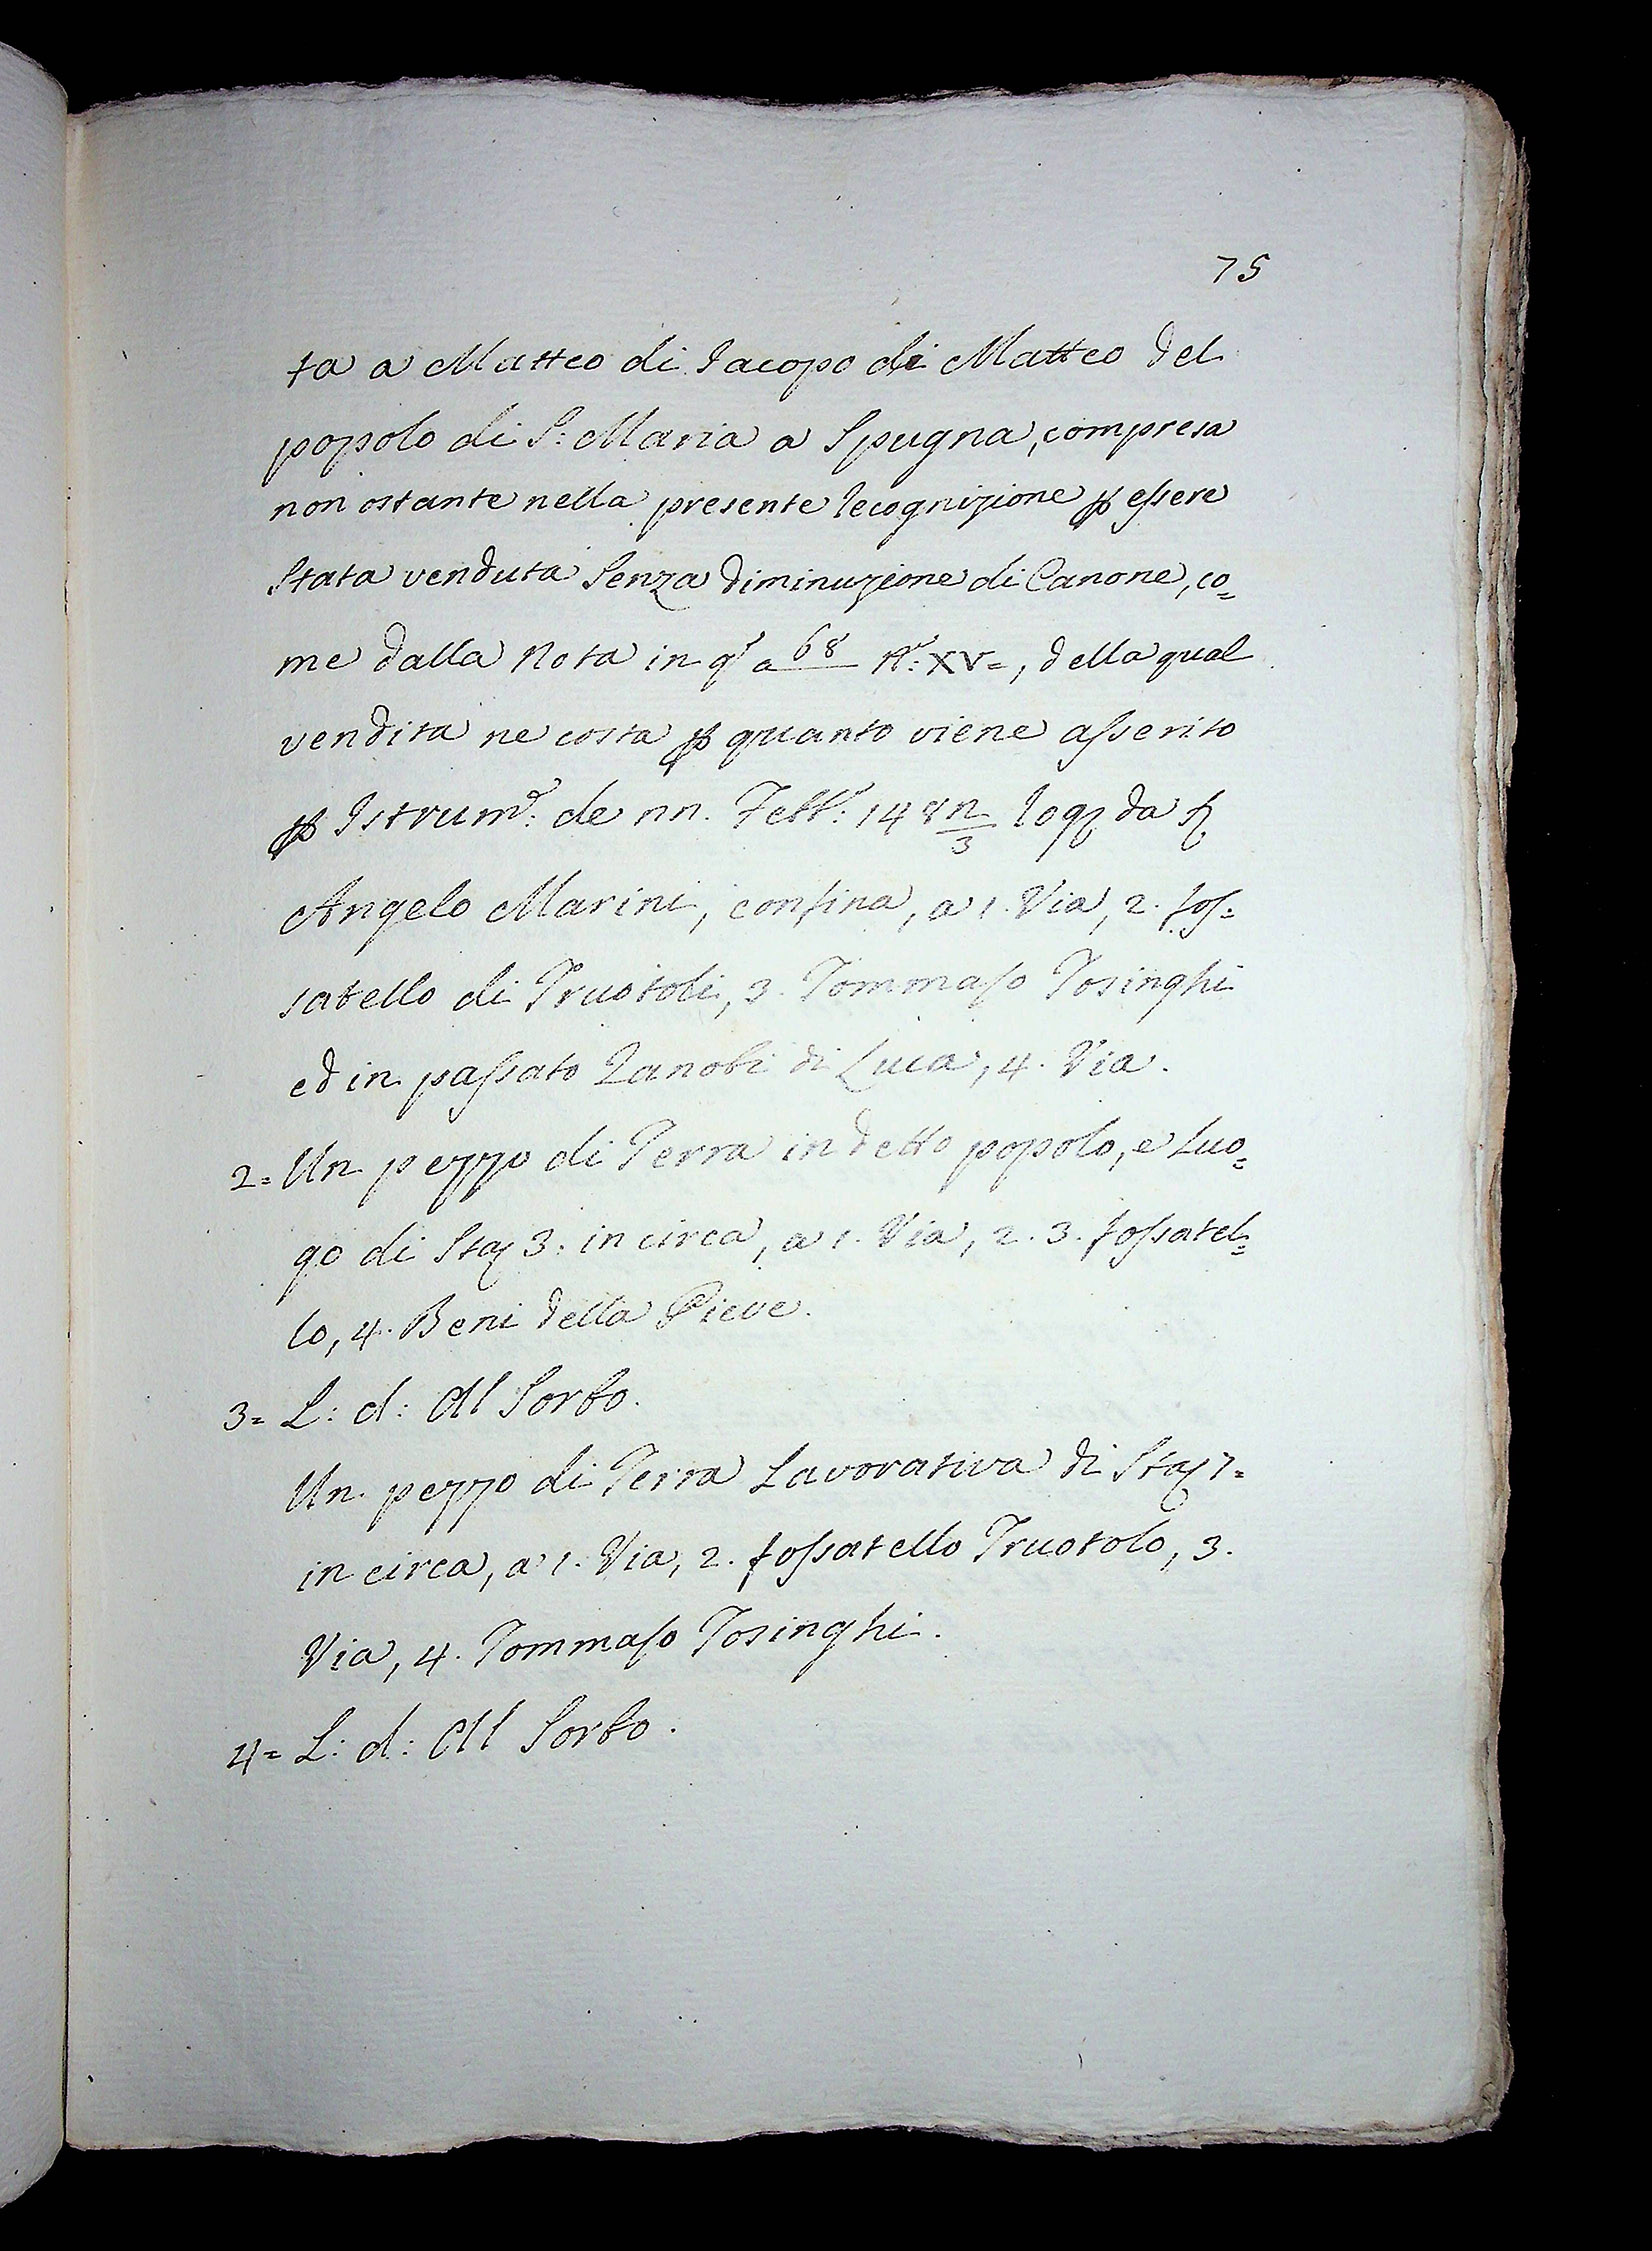 75
ta a Matteo di Jacopo di Matteo del
popolo di S: Maria a Spugna, compresa
non ostante nella presente recognizione ꝑ essere
Stata venduta Senza diminuzione di Canone, co=
me dalla Nota in q.º a 68 N.º: XV=, della qual
vendita ne costa ꝑ quanto viene asserito
ꝑ Istrum.º: de nn. Febb.º: 148 2/3 rog. da
Angelo Marini, confina, a 1. Via, 2. fos=
satello di Truotoli, 3. Tommaso Tosinghi
ed in passato Zanobi di Luca, 4. Via.
2= Un pezzo di Terra in detto popolo, e Luo=
go di Sta. 3: in circa, a 1. Via, 2. 3. fossatel=
lo, 4. Beni della Pieve.
3= L: d: Al Sorbo.
Un pezzo di Terra Lavorativa di Sta. 7=
in circa, a 1. Via, 2. fossatello Truotolo, 3.
Via, 4. Tommaso Tosinghi.
4= L: d: Al Sorbo.